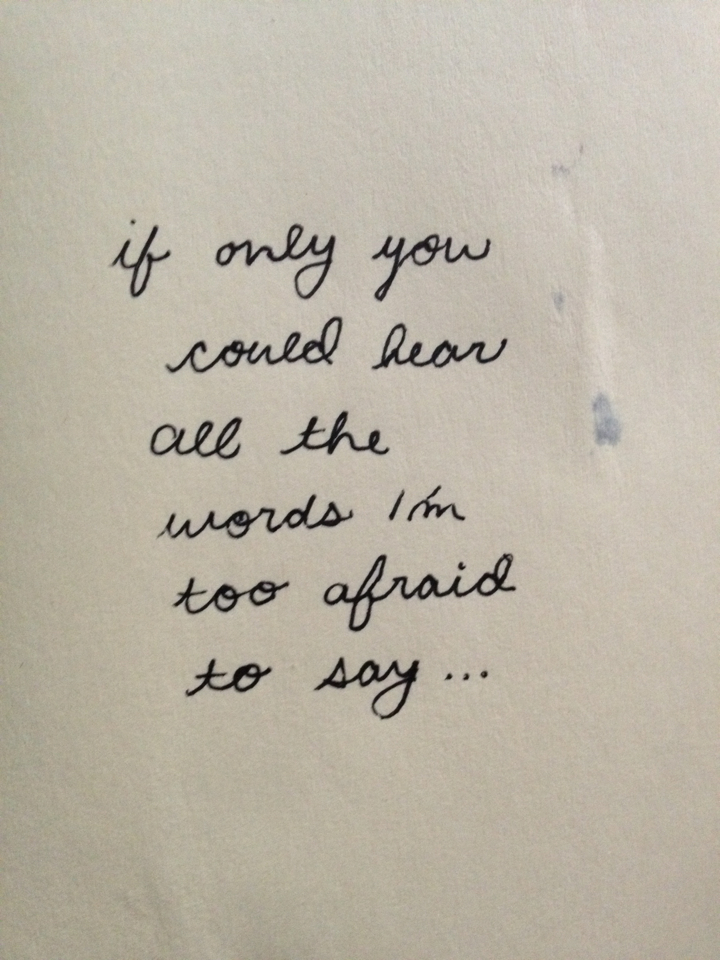 if only you
could hear
all the
words I'm
too afraid
to say...